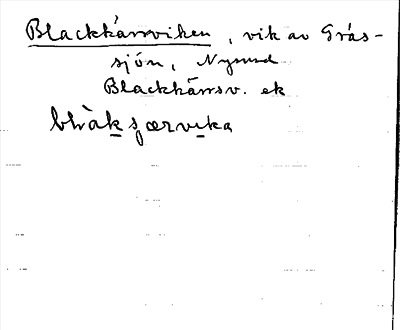 Blackkärrviken, vik av Grås-
sjön, Nysund
Blackkärrsv. ek
blàksjærvika